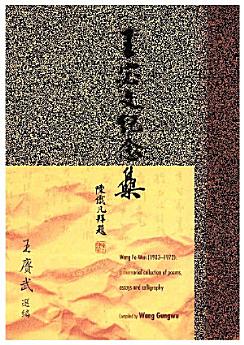 王宓文紀念集
王賡武 選編
Wang Fo-Wen (1903–1972):
a memorial collection of poems,
essays and calligraphy
Compiled by Wang Gungwu